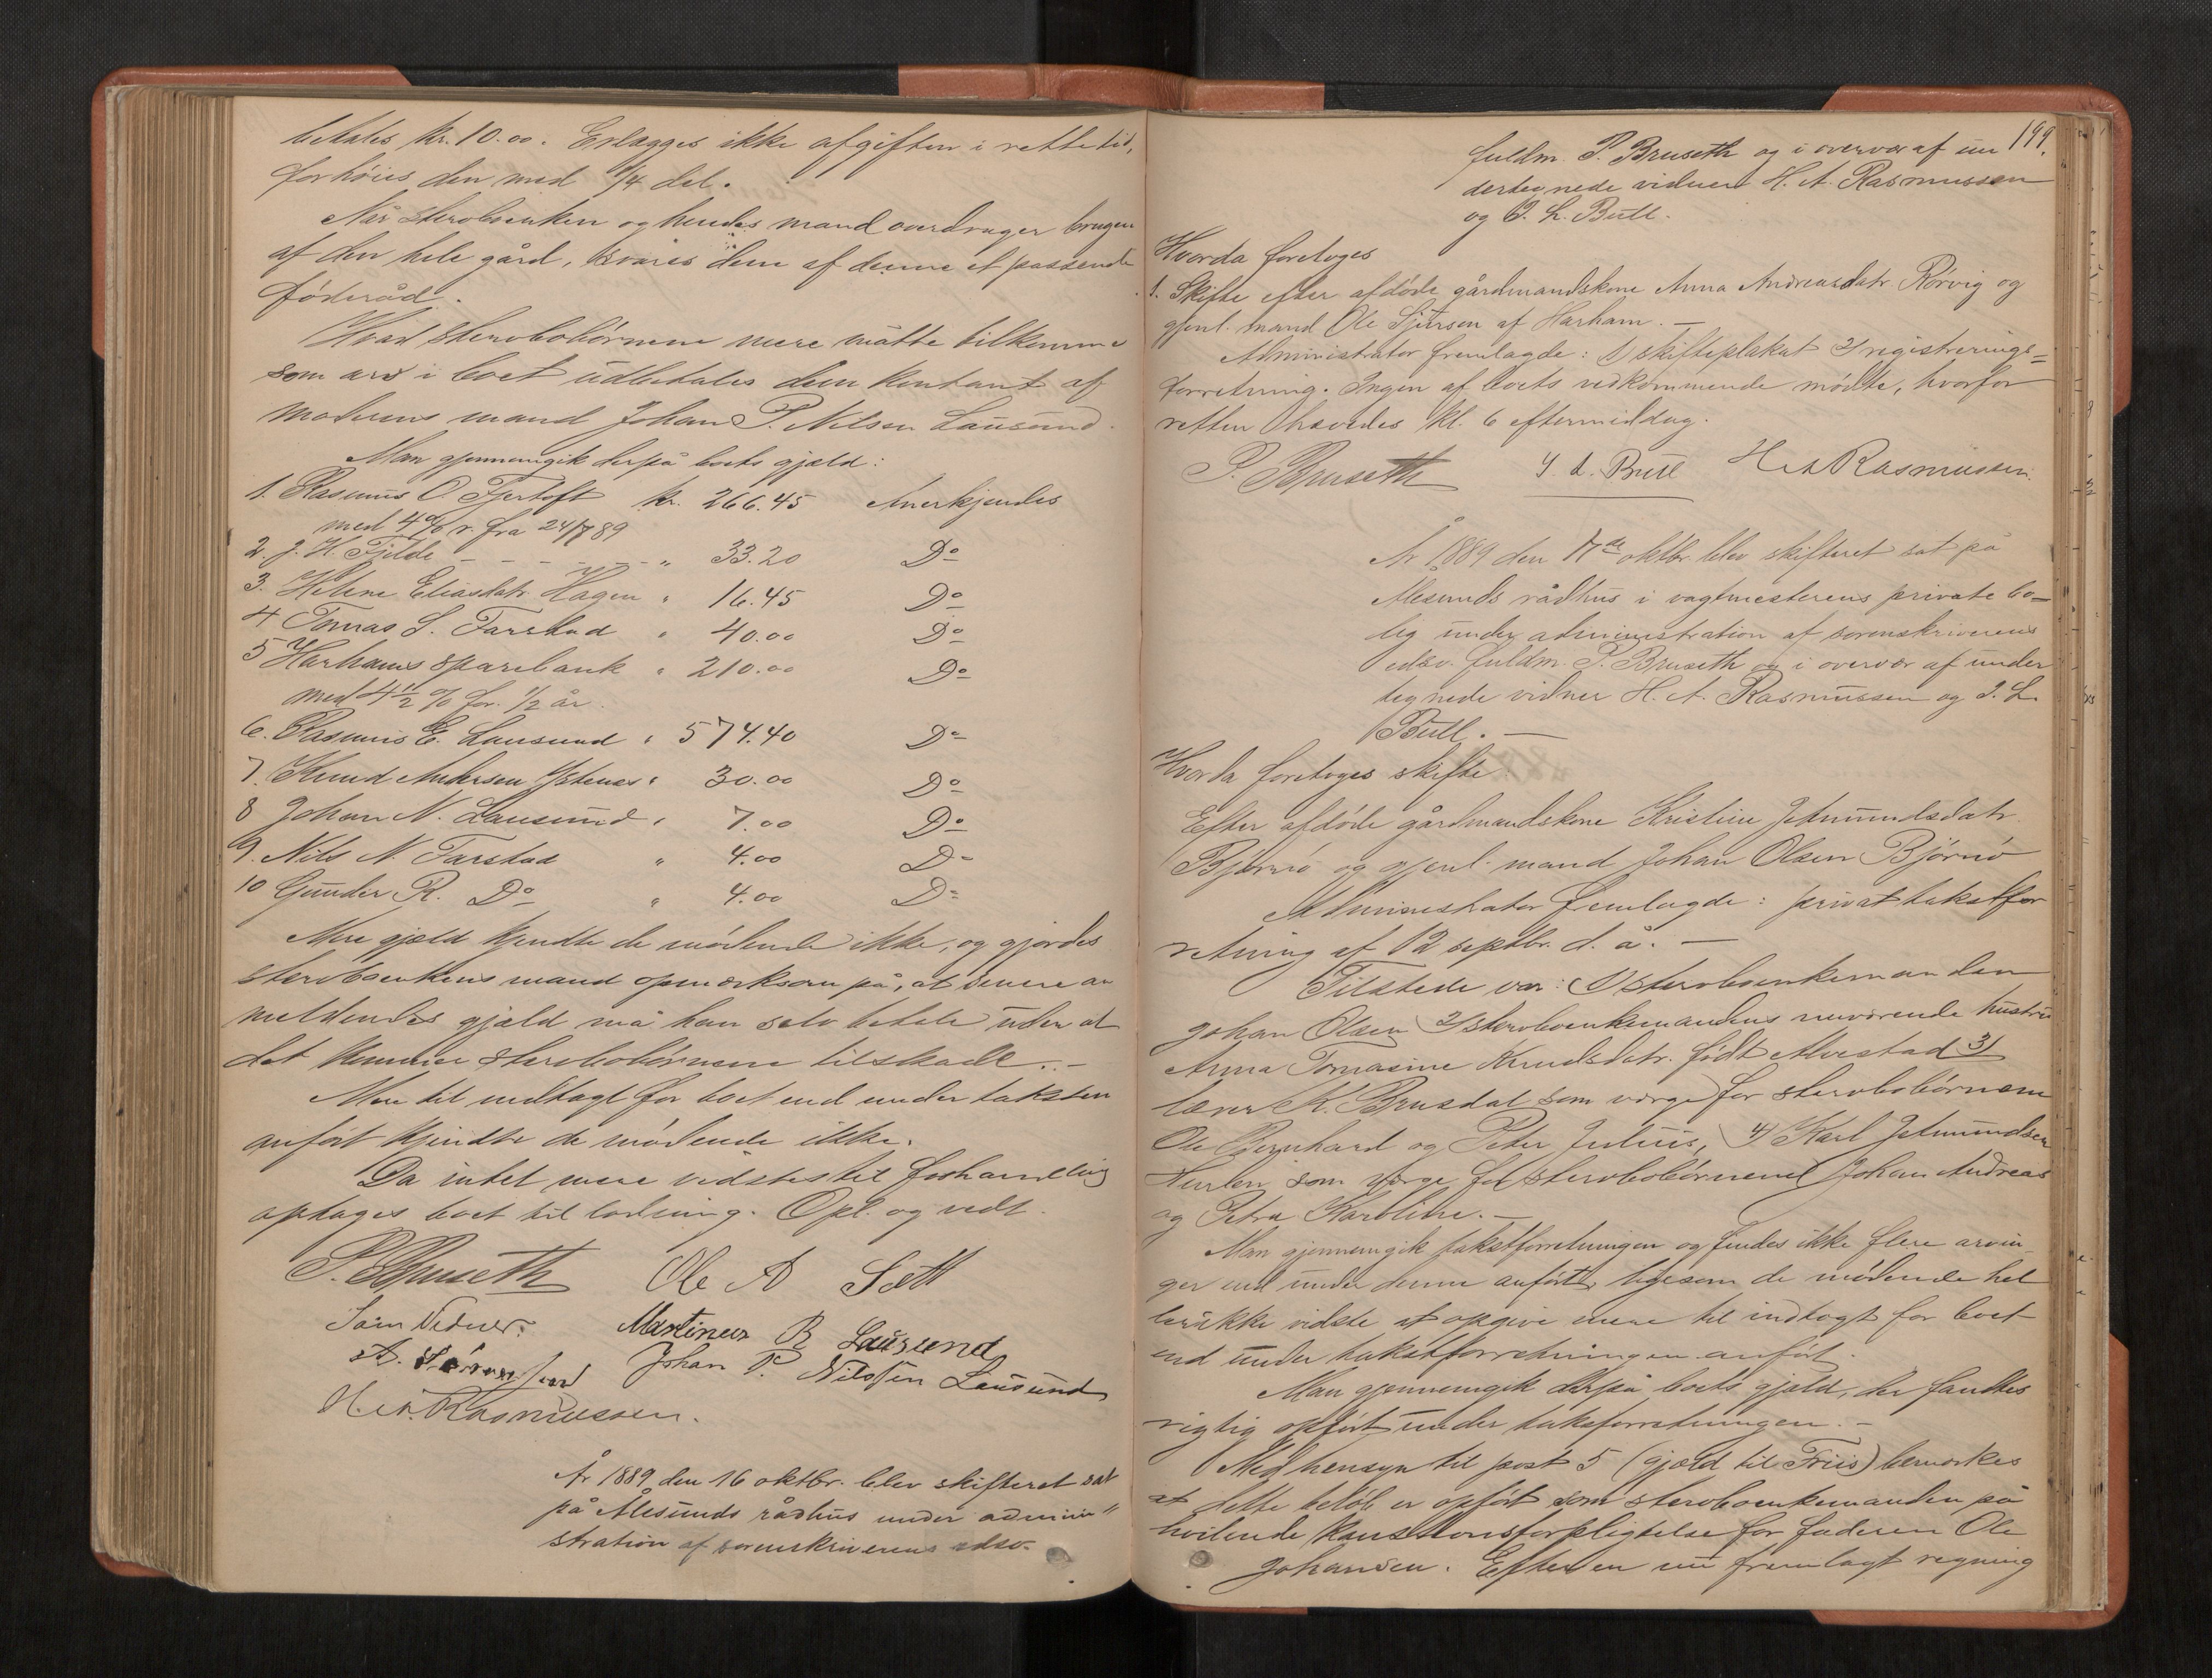 betales kr. 10.00. Erlægges ikke afgiften i rette tid,
forhöies den med 1/4 del.
Når sterobenken og hendes mand overdrager brugen
af den hele gård, svares dem af denne et passende
föderåd.
Hvad sterobobörnene mere måtte tilkomme
som arv i boet udbetales dem kontant af
moderens mand Johan P. Nilsen Lausund.
Man gjennemgik derpå boets gjæld:
1. Rasmus O. Fjertoft kr. 266.45 Anerkjendes
med 4 % r. fra 24/7 89
2. J. H. Fjelde - - - - - " 33.20 Do
3. Helene Eliasdatr. Hagen " 16.45 Do
4 Tomas S. Farstad " 40.00 Do
5 Harhams sparebank " 210.00 Do
med 4 1/2 % for 1/2 år.
6. Rasmus E. Lausund " 574.40 Do
7. Knud Andersen Ystenes " 30.00 Do
8 Johan N. Lausund " 7.00 Do
9. Nils N. Farstad " 4.00 Do
10 Gunder R. Do " 4.00 Do
Mere gjæld kjendte de mödende ikke, og gjordes
sterboenkens mand opmærksom på, at senere an
meldendes gjæld må han selv betale uden at
det kommer sterbobörnene tilskade. -
Mere til indtægt for boet end under taksten
anfört kjendte de mödende ikke.
Da intet mere vidstes til forhandling
optages boet til lodning. Opl. og vedt.
P. Bruseth Ole A Sætt
Som Vidner: Martinus R Lausund
A. Johan P. Nilssen Lausund
H. A. Rasmussen.
År 1889 den 16 oktbr. blev skifteret sat
på Ålesunds rådhus under admini"
stration af sorenskriverens edsv.
199.
fuldm. P. Bruseth og i overvær af un
dertegnede vidner H. A. Rasmussen
og J. L. Bull.
Hvorda foretoges
1. Skifte efter afdöde gårdmandskone Anna Andreasdatr. Rörvig og
gjenl. mand Ole Sjursen af Harham. -
Administrator fremlagde: 1) skifteplakat 2) registrerings=
forretning. Ingen af boets vedkommende mödte, hvorfor
retten hævedes kl. 6 eftermiddag.
P. Bruseth J. L. Bull H A Rasmussen.
År 1889 den 17de oktbr. blev skifteret sat på
Ålesunds rådhus i vagtmesterens private bo=
lig under administration af sorenskriverens
edsv. fuldm. P. Bruseth og i overvær af under
tegnede vidner H. A. Rasmussen og J. L.
Bull. -
Hvorda foretoges skifte
Efter afdöde gårdmandskone Kristine Jetmundsdatr.
Björnö og gjenl. mand Johan Olsen Björnö
Administrator fremlagde: privat takstfor
retning af 12 septbr. d. å. -
Tilstede var: 1) sterboenkemanden
Johan Olsen 2) sterboenkemandens nuværende hustru
Anna Tomasine Knudsdatr. födt Alvestad 3)
lærer K. Brusdal som værge for sterbobörnene
Ole Bernhard og Peter Julius, 4) Karl Jetmundsen
som værge for sterbobörnene Johan Andreas
og Petra Karoline. -
Man gjennemgik takstforretningen og findes ikke flere arvin
ger end under denne anfört, ligesom de mödende hel
ler ikke vidste at opgive mere til indtægt for boet
end under takstforretningen anfört.
Man gjennemgik derpå boets gjæld, der fandtes
rigtig opfört under takstforretningen. -
Med hensyn til post 5 (gjæld til Friis) bemærkes
at dette belöb er opfört som sterboenkemanden på
hvilende kautionsforpligtelse for faderen Ole
Johansen. Efter en nu fremlagt regning